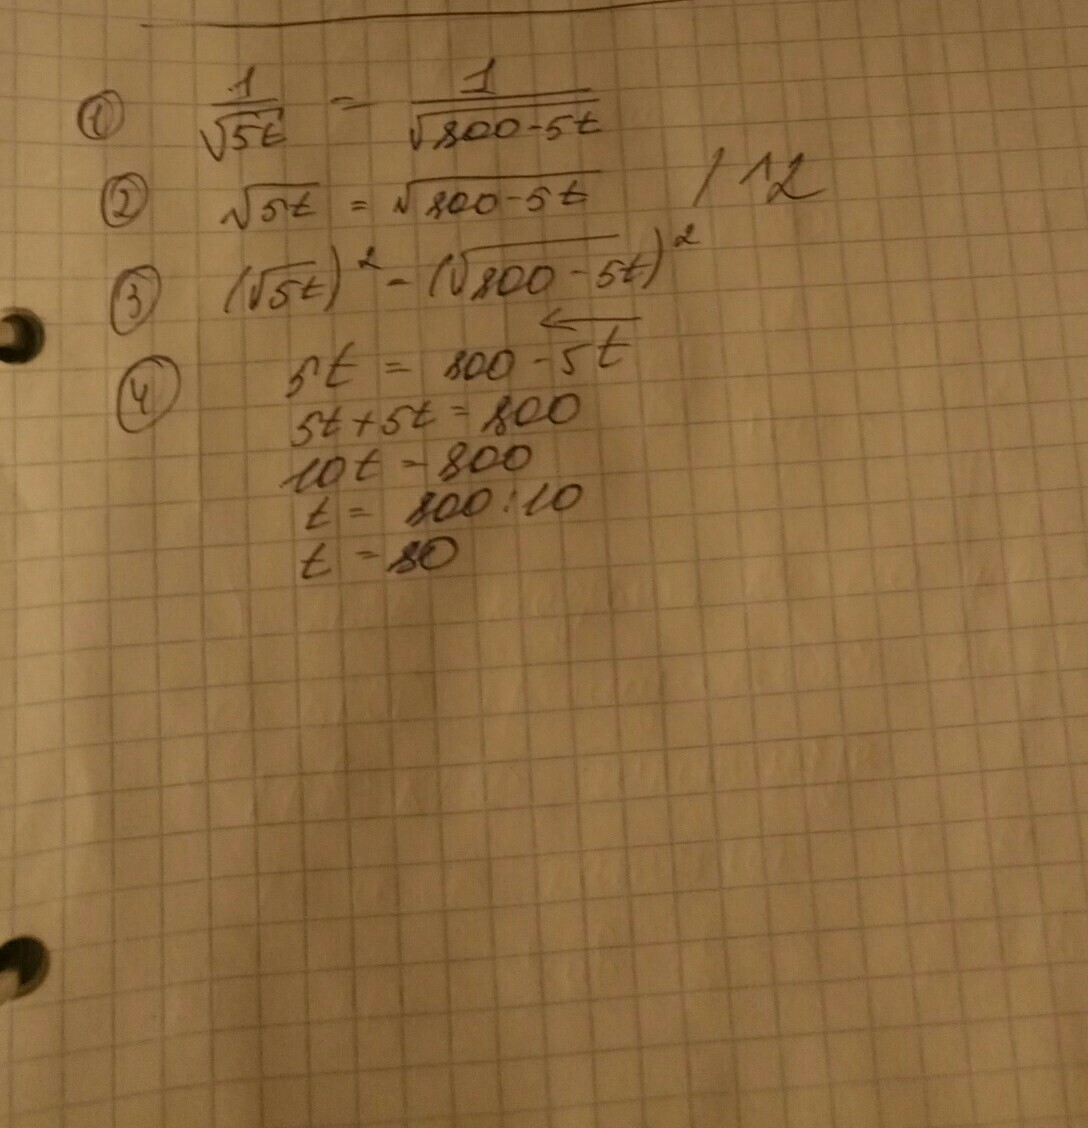 ① 1/√5t = 1/√800-5t
② √5t = √800-5t / ^2
③ (√5t)² = (√800-5t)²
④ 5t = 800-5t
5t+5t=800
10t=800
t= 800:10
t=80